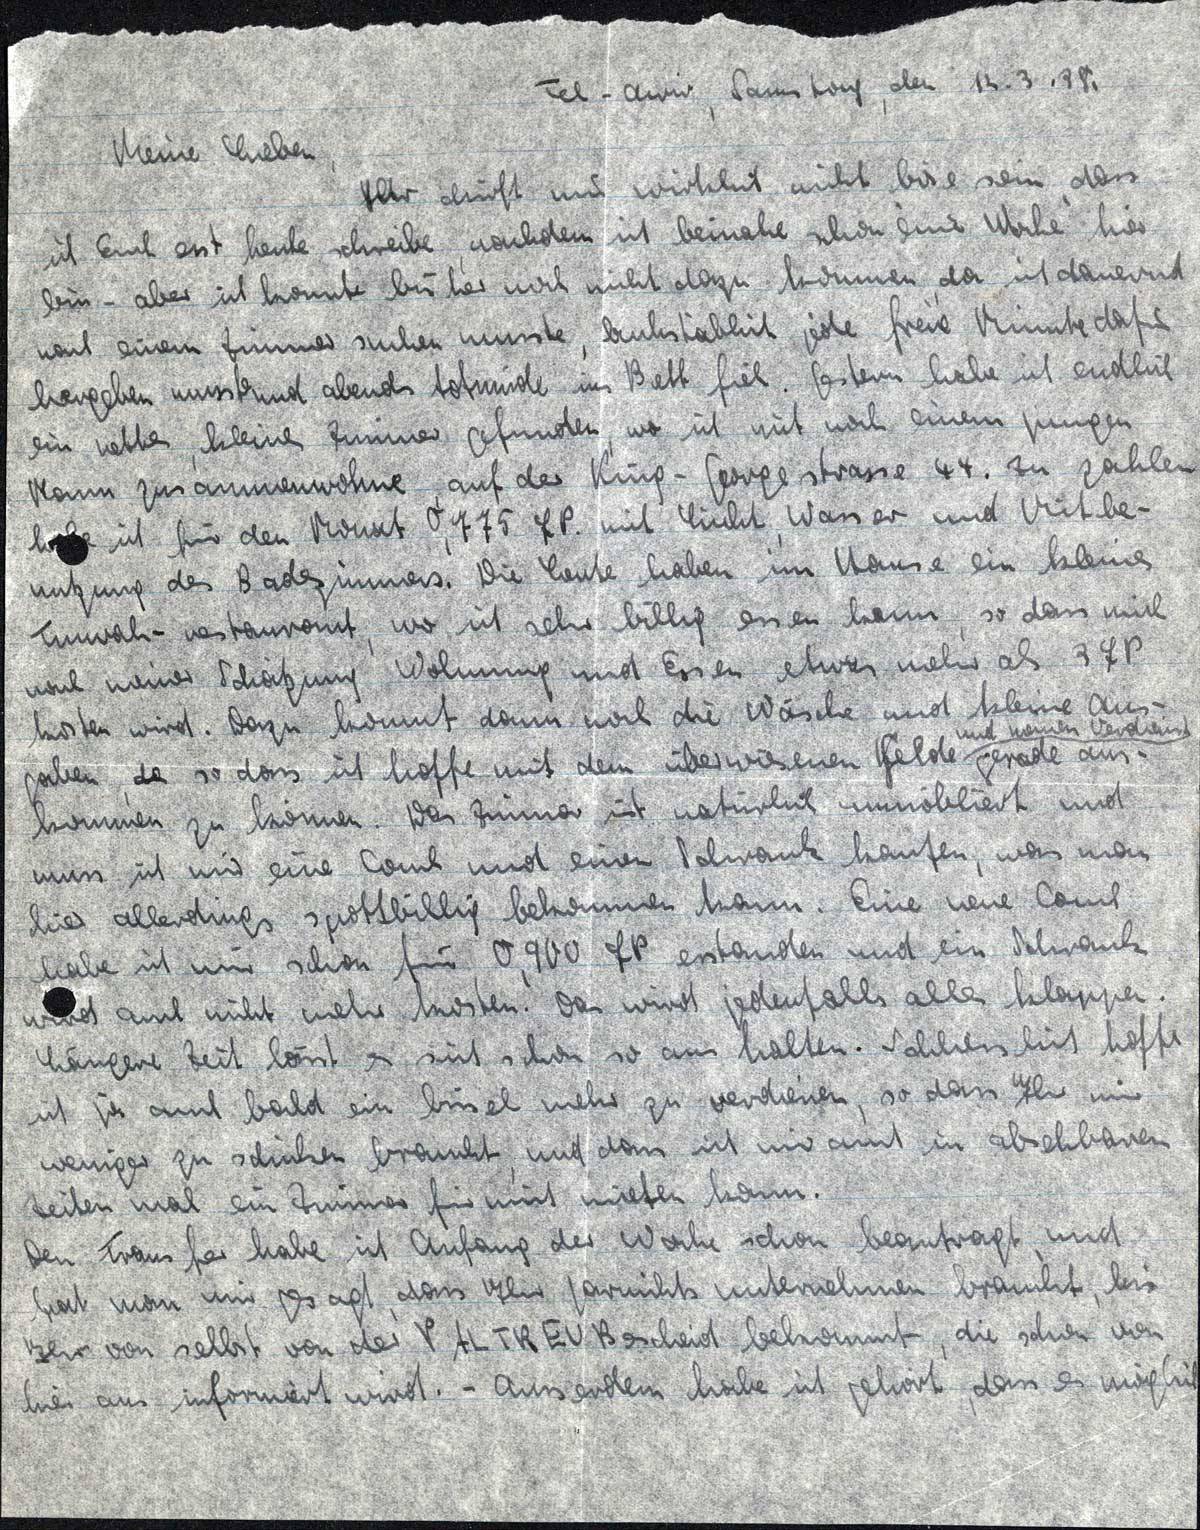 Tel-Awiw, Samstag, den 12.3.38.
Meine Lieben,
Ihr dürft mir wirklich nicht böse sein, dass
ich Euch erst heute schreibe, nachdem ich beinahe schon eine Woche hier
bin - aber ich konnte bisher noch nicht dazu kommen, da ich dauernd
nach einem Zimmer suchen musste, buchstäblich jede freie Minute dafür
hergeben musste und abends totmüde ins Bett fiel. Gestern habe ich endlich
ein nettes, kleines Zimmer gefunden, wo ich mit noch einem jungen
Mann zusammenwohne, auf der King-Georgestrasse 44. Zu zahlen
habe ich für den Monat 0,775 £P. mit Licht, Wasser und Mitbe-
nutzung des Badezimmers. Die Leute haben im Hause ein kleines
restaurant, wo ich sehr billig essen kann, so dass mich
nach meiner Schätzung Wohnung und Essen etwas mehr als 3 £P
kosten wird. Dazu kommt dann noch die Wäsche und kleine Aus-
gaben, so dass ich hoffe mit dem überwiesenen Gelde und meinem Verdienst gerade aus-
kommen zu können. Das Zimmer ist natürlich unmöbliert und
muss ich mir eine Couch und einen Schrank kaufen, was man
hier allerdings spottbillig bekommen kann. Eine neue Couch
habe ich mir schon für 0,900 £P erstanden und ein Schrank
wird auch nicht mehr kosten. Das wird jedenfalls alles klappen.
Längere Zeit lässt es sich schon so aushalten. Schliesslich hoffe
ich ja auch bald ein bissel mehr zu verdienen, so dass Ihr mir
weniger zu schicken braucht, und dass ich mir auch in absehbaren
Zeiten mal ein Zimmer für mich mieten kann.
Den Transfer habe ich Anfang der Woche schon beantragt und
hat man mir gesagt, dass Ihr garnichts unternehmen braucht, bis
Ihr von selbst von der PALTREU Bescheid bekommt, die schon von
hier aus informiert wird. - Ausserdem habe ich gehört, dass es möglich